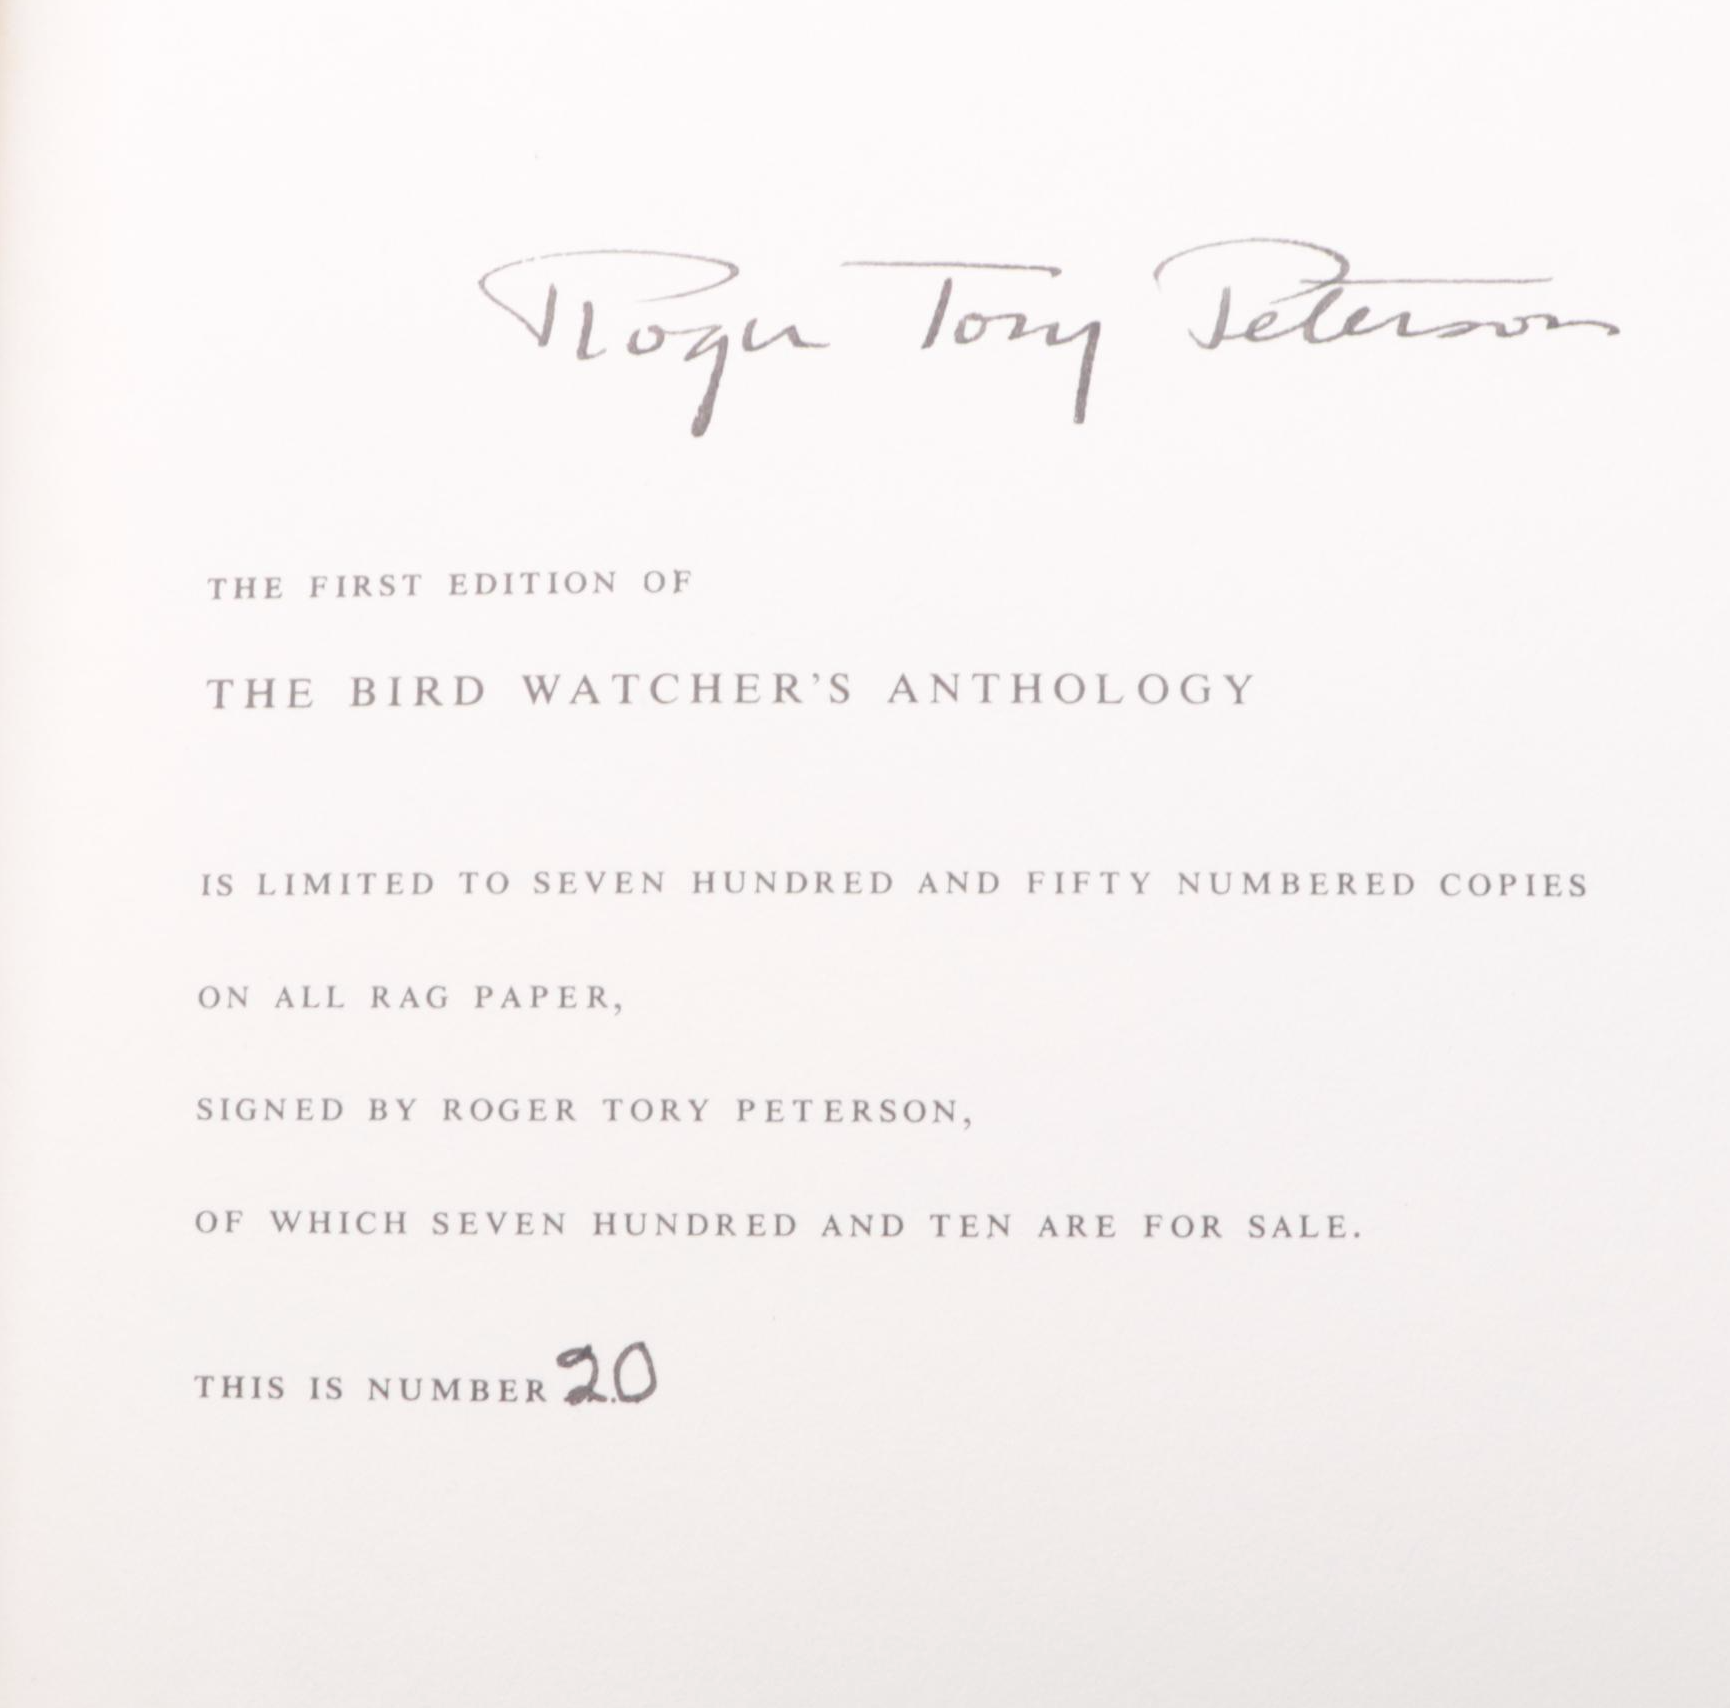 Roger Tory Peterson
THE FIRST EDITION OF
THE BIRD WATCHER'S ANTHOLOGY
IS LIMITED TO SEVEN HUNDRED AND FIFTY NUMBERED COPIES
ON ALL RAG PAPER,
SIGNED BY ROGER TORY PETERSON,
OF WHICH SEVEN HUNDRED AND TEN ARE FOR SALE.
THIS IS NUMBER 20